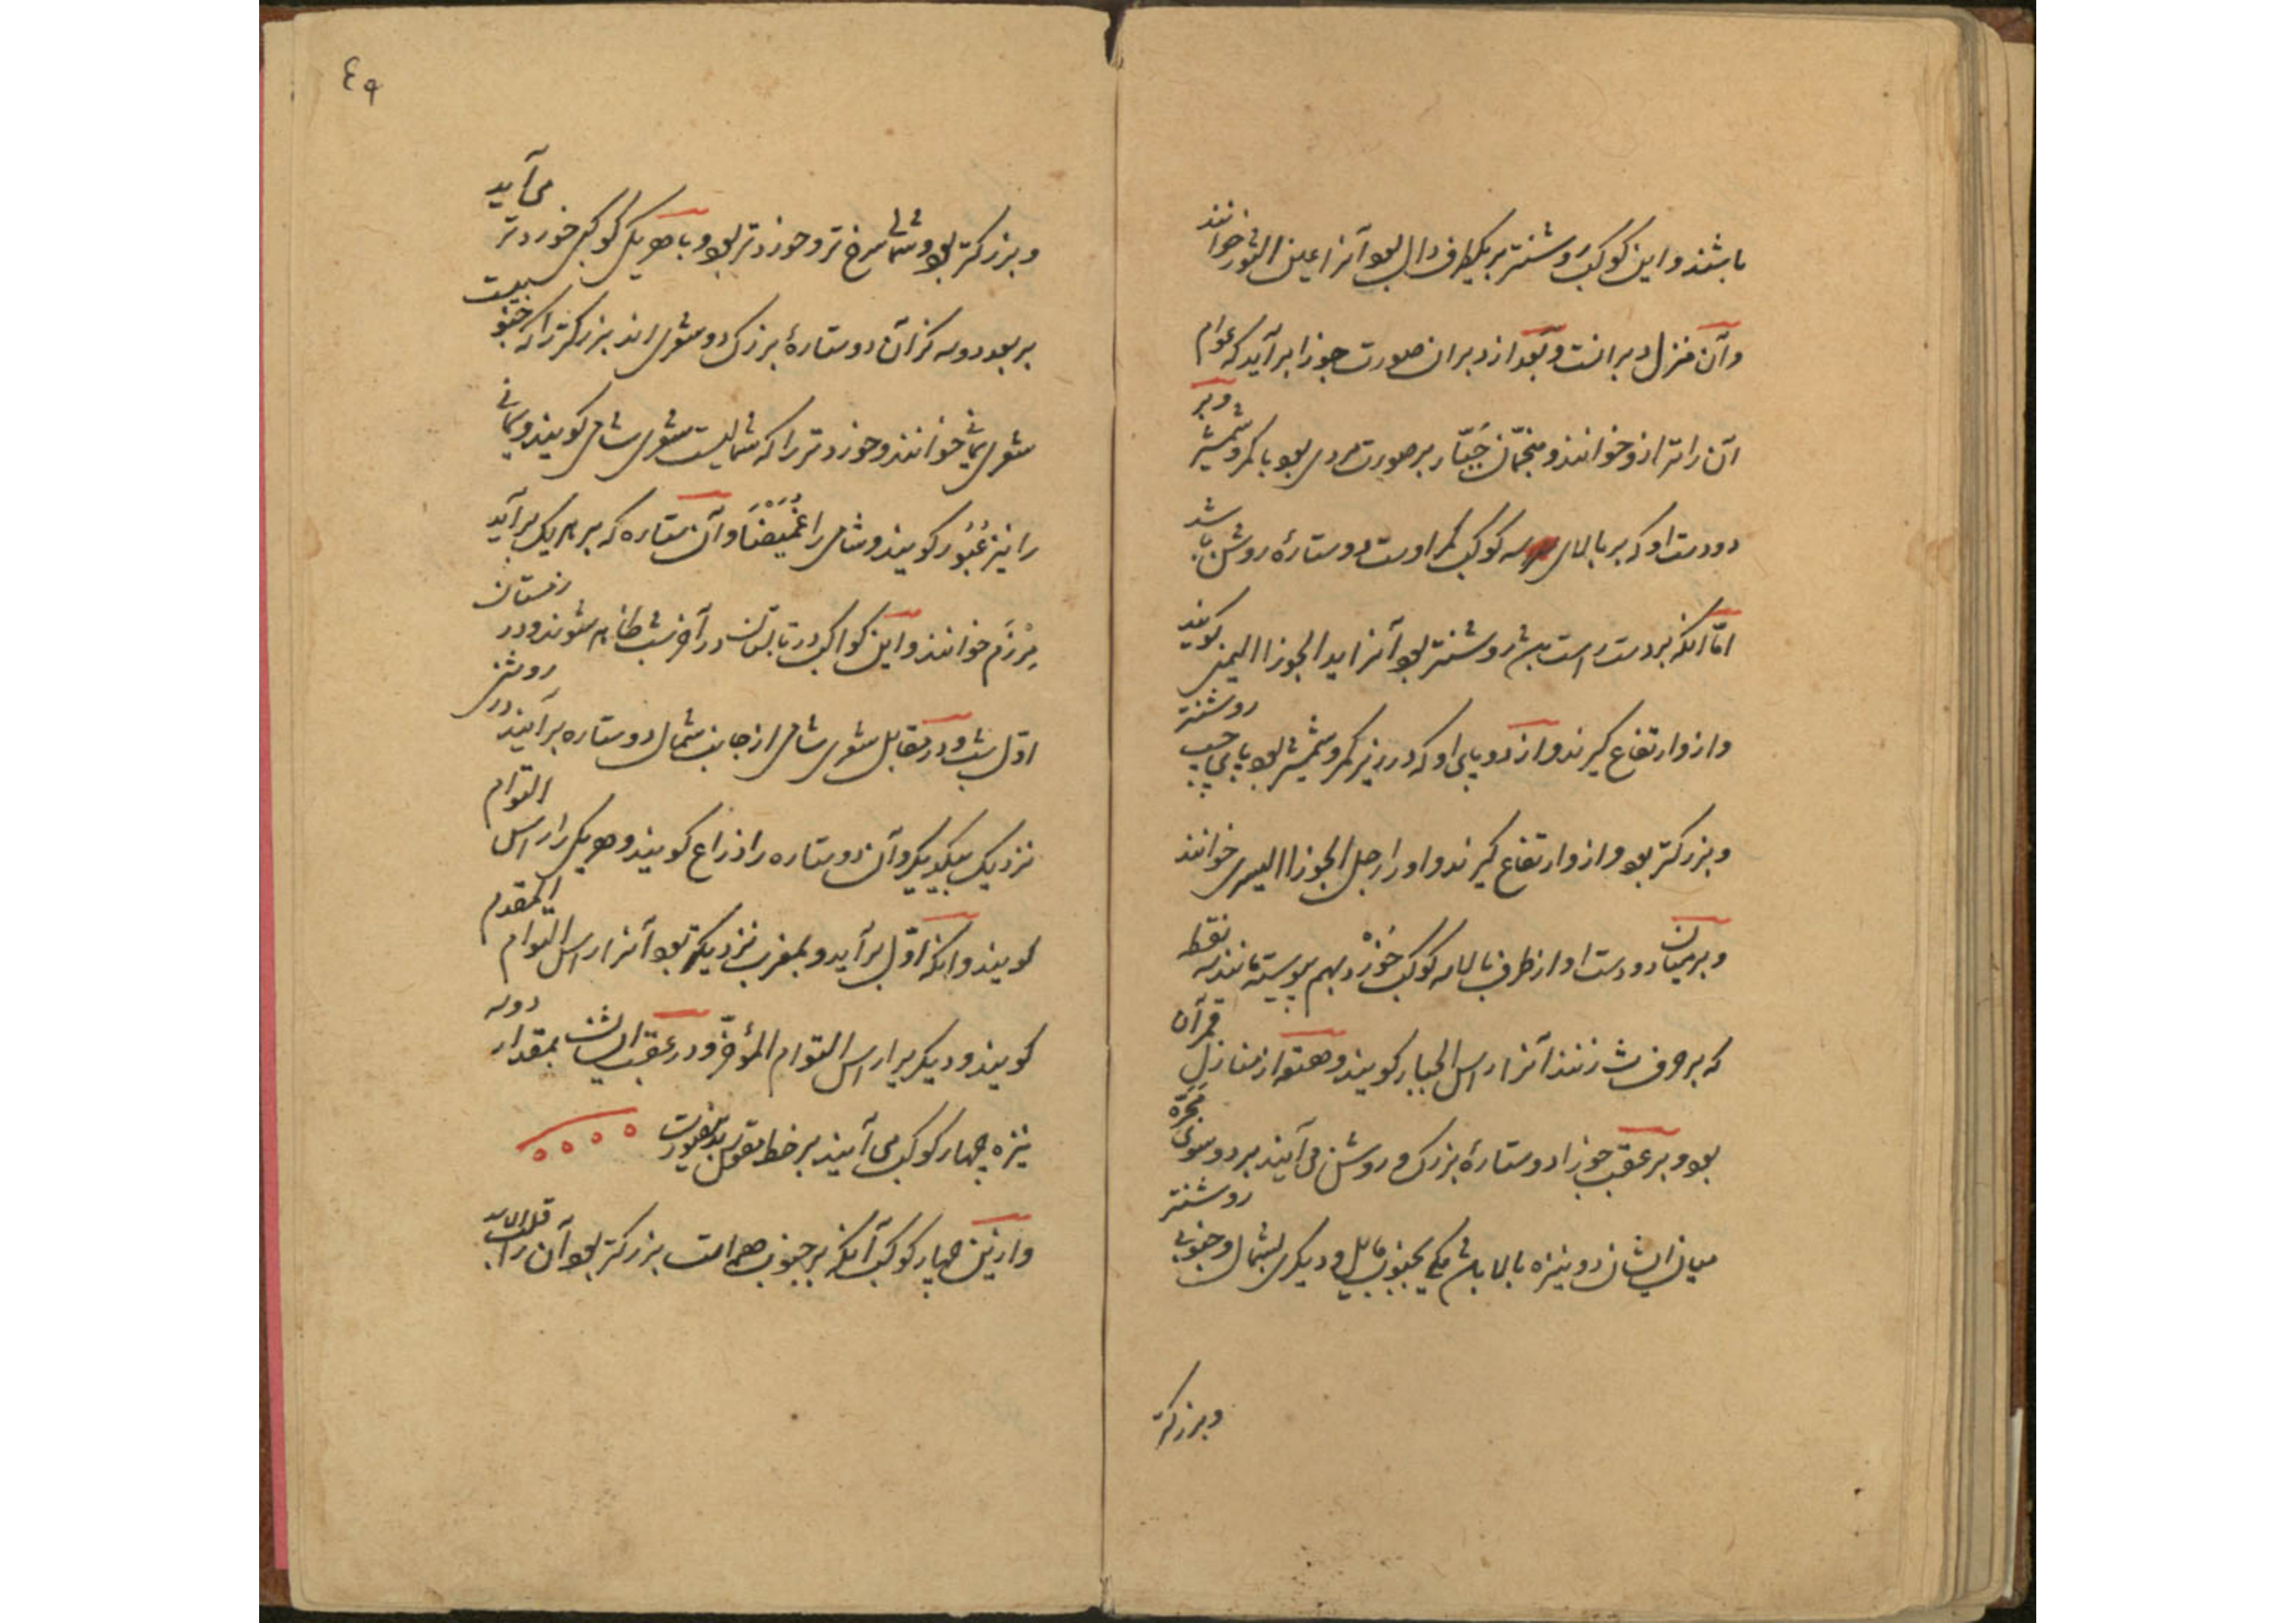 باشند و این کوکب روشنتر بر یکطرف دال بود آنرا عین الثور خوانند
و آن منزل دبرانست و بعد از دبران صورت جوزا برآید که عوام
آن را ترازو خوانند و منجمان جَبّار بر صورت مردی بود با کمر و شمشیر و بر
دو دست او که بر بالای سه کوکب کمر اوست دو ستارهٔ روشن باشد
امّا انکه بر دست راستش روشنتر بود آنرا ید الجوزا الیمنی کویند
و ازو ارتفاع کیرند و از دو پای او که در زیر کمر و شمشیر بود پای چپ روشنتر
و بزرکتر بود و ازو ارتفاع کیرند و او را رجل الجوزا الیسری خوانند
و بر میان دو دست او از طرف بالا سه کوکب خُرد بهم پیوسته مانند سه نقطه
که بر حرف ث زنند آنرا راس الجبار کویند و هقعه از منازل قمر آن
بود و بر عقب جوزا دو ستارهٔ بزرک و روشن می آیند بر دو سوی مَجَرّه
میان ایشان دو نیزه بالا باشد یکی بجنوب مایل و دیکری بشمال و جنوبی روشنتر
و بزرکتر
٤٩
و بزرکتر بود و شمالی سرخ تر و خوردتر بود و با هر یکی کوکبی خوردتر می آید
بر بعد دو سه کز آن دو ستارهٔ بزرک دو شعری اند بزرکتر را که جنوبیست
شعری یمانی خوانند و خوردتر را که شمالیست شعری شامی کویند و یمانی
را نیز عُبُور کویند و شامی را غُمَیْضَا و آن ستاره که بر هر یک برآید
مِرْزَم خوانند و این کواکب در تابستان در آخر شب ظاهر شوند و در زمستان
اوّل شب و در مقابل شعری شامی از جانب شمال دو ستاره برآیند در روشنی
نزدیک بیکدیکر و آن دو ستاره را ذراع کویند و هر یکی را راس التوام
کویند و انکه اوّل برآید و بمغرب نزدیکتر بود آنرا راس التوام المقدم
کویند و دیکر برا راس التوام المؤخّر و در عقب ایشان بمقدار دو سه
نیزه چهار کوکب می آیند بر خط مقوس بدینصورت
و ازین چهار کوکب آنکه بر جنوب همه است بزرکتر بود آن را قلب الاسد